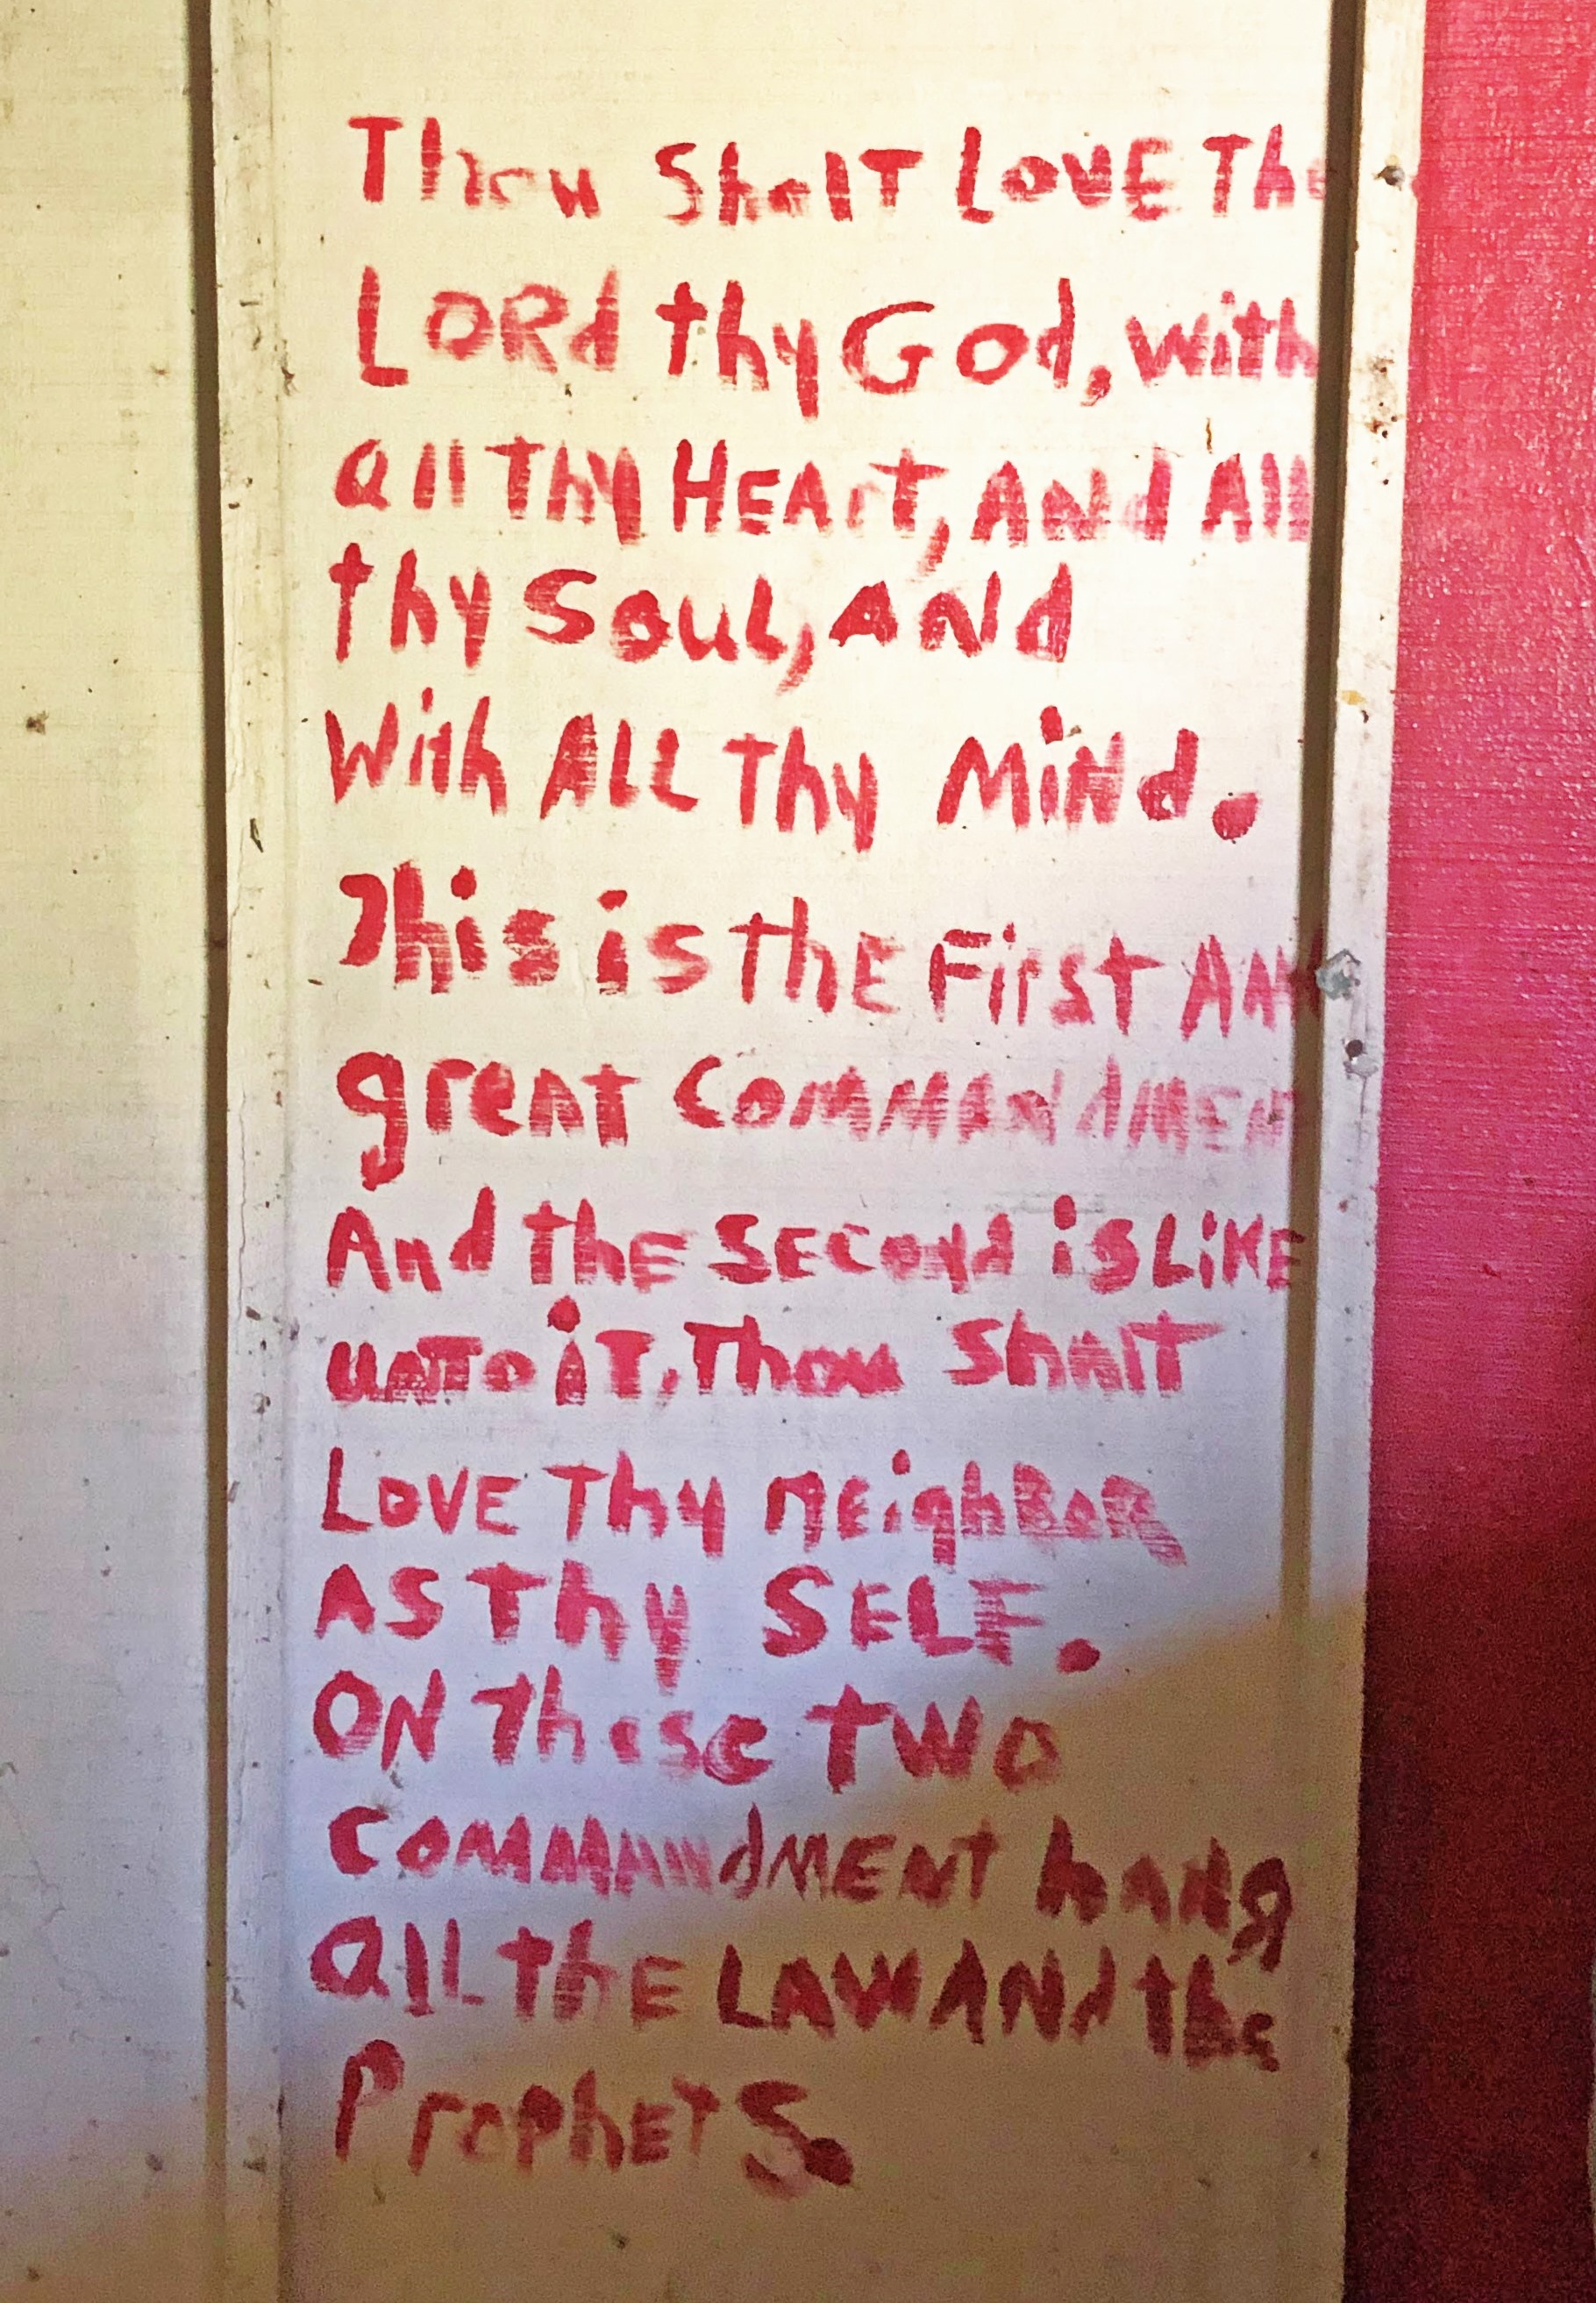 Thou ShalT LOVE The
LORd thy God, with
all Thy HEArT, ANd All
thy SouL, ANd
With ALL Thy MiNd.
This is thE First ANd
great COMMANdMENT
And thE SECond is LiKE
unTo iT, Thou ShalT
LOVE Thy NEighBOR
AS Thy SELF.
ON These TWO
COMMANdMENT hANg
all. thE LAW ANd the
ProphETS.